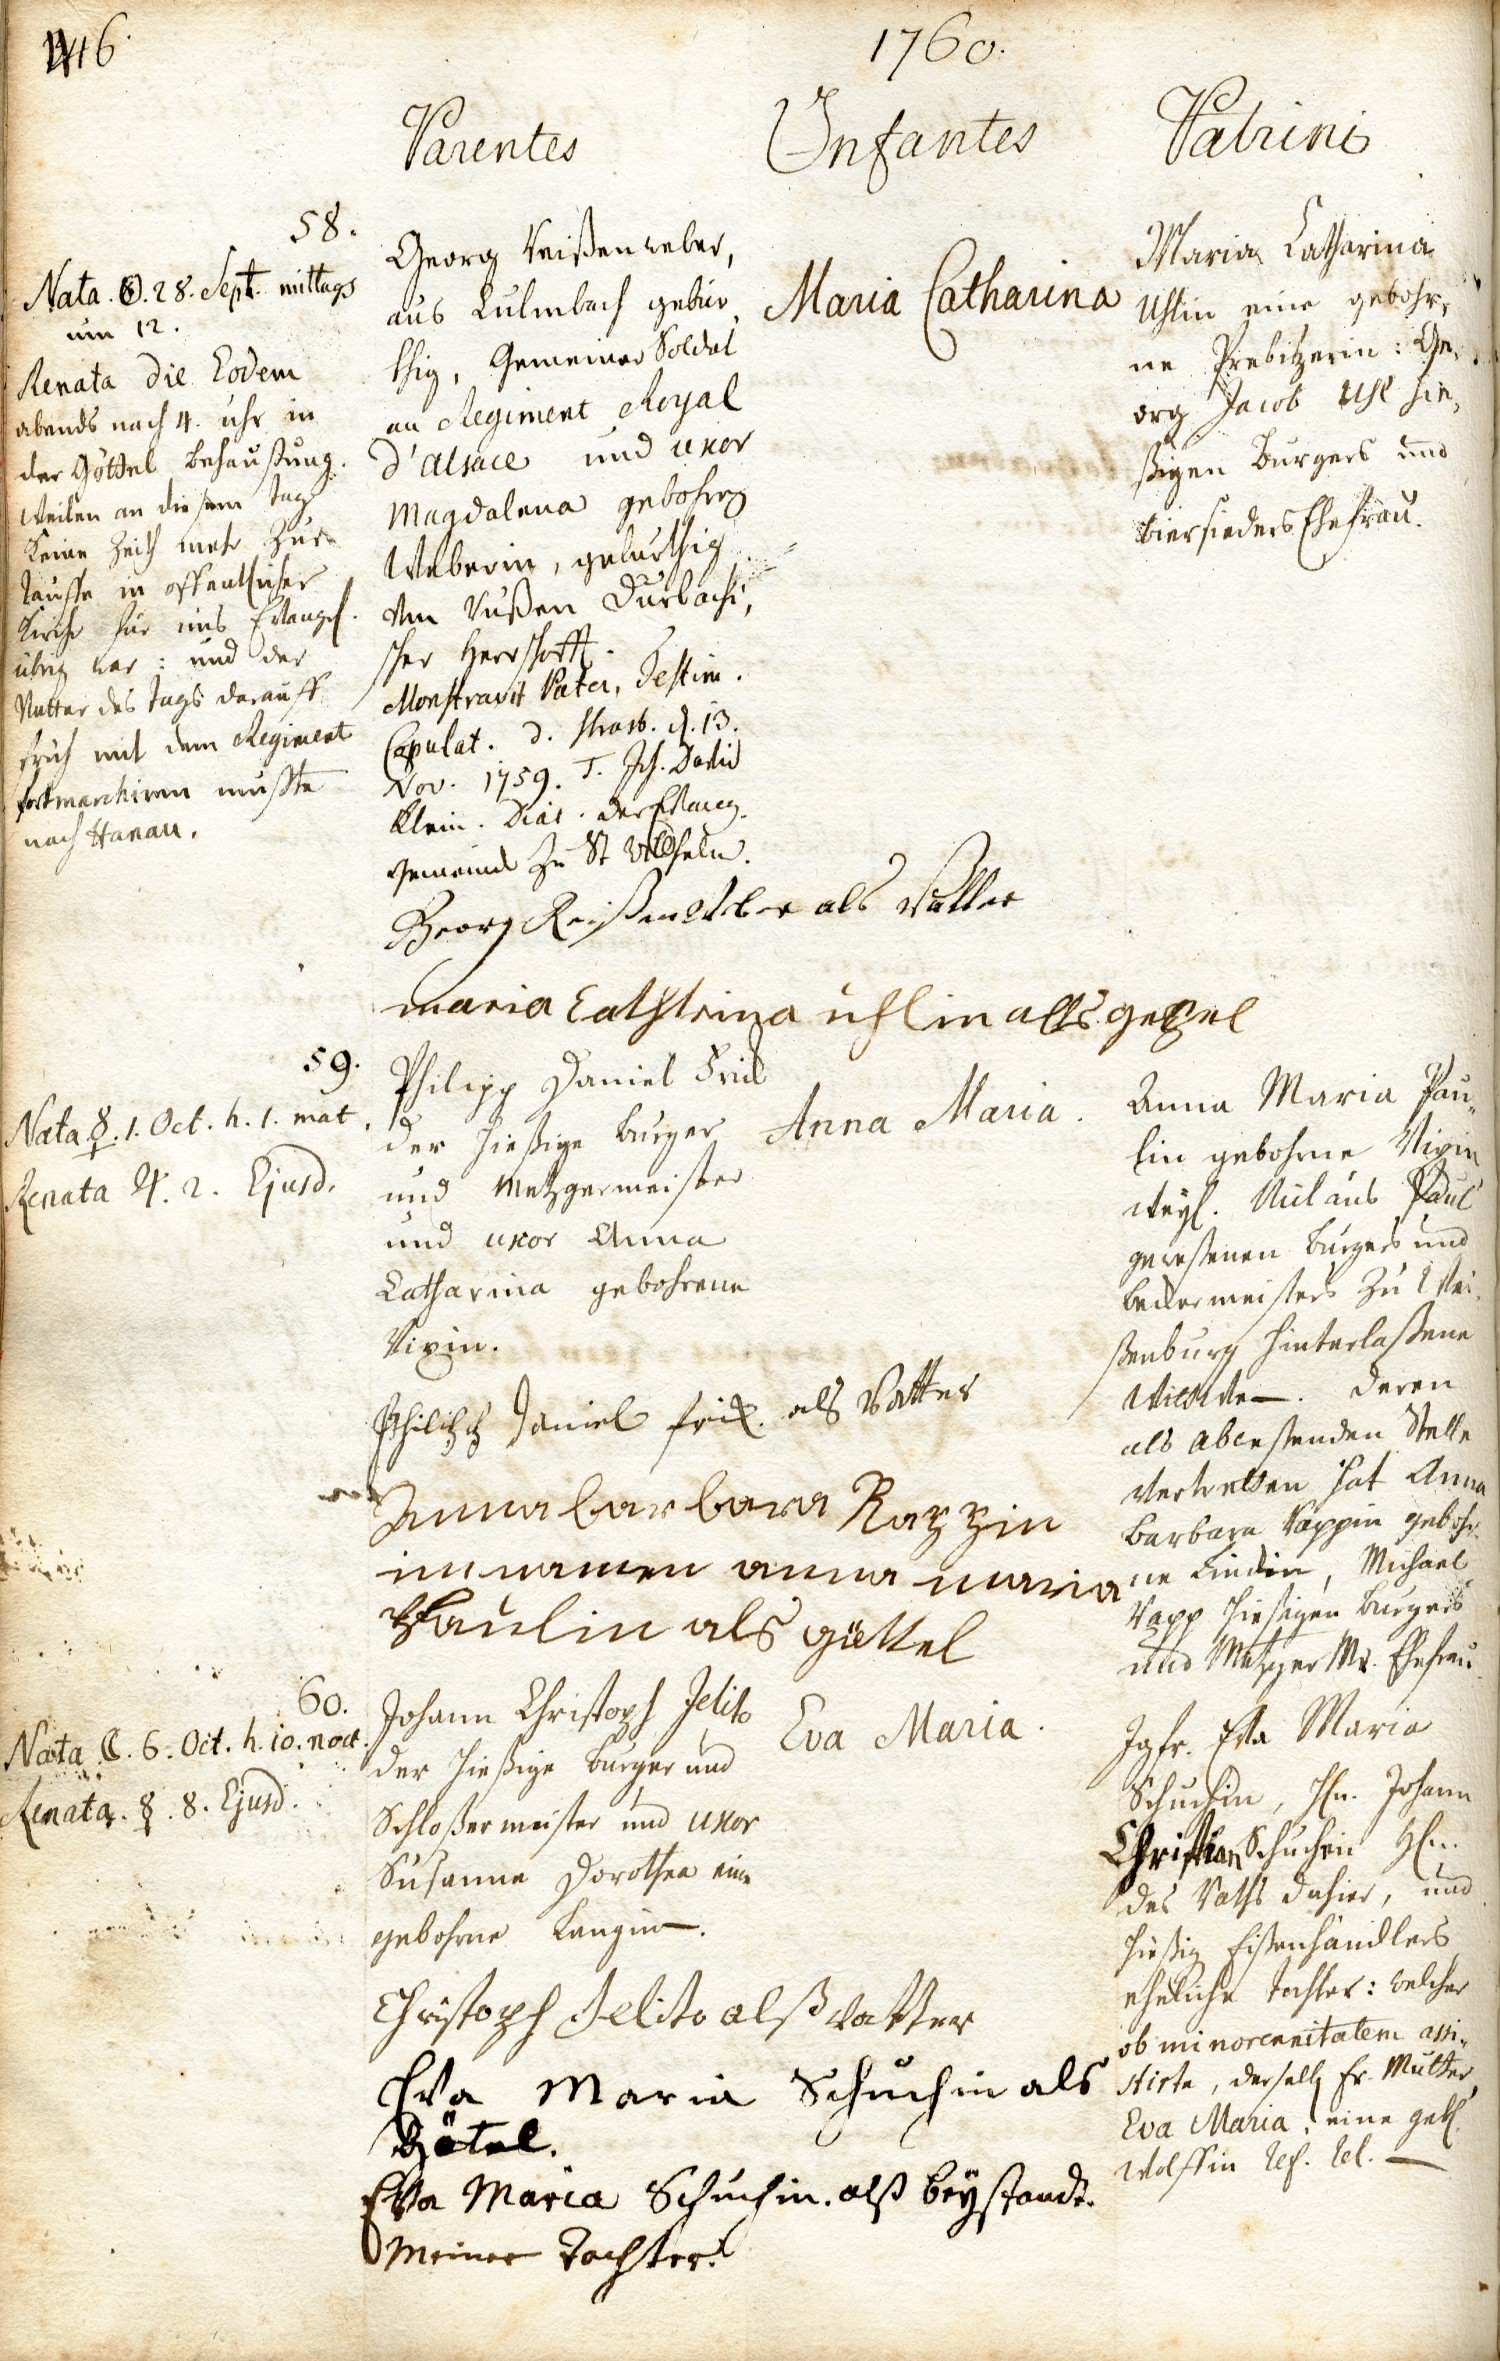 416.
1760.
Parentes
Infantes
Patrini
58.
Nata ☉. 28. Sept. mittags
um 12.
Renata die Eodem
abends nach 4. uhr in
der Göttel behaußung.
weilen an diesem tag
keine Zeith mehr zur
Tauffe in offentlicher
Kirche für uns Evangel.
übrig war: und der
Vatter des tags darauff
früh mit dem Regiment
fortmarchiren mußte
nach Hanau.
Georg Reißenweber,
aus Culmbach gebür
thig, Gemeiner Soldat
an Regiment Royal
d'alsace und uxor
Magdalena gebohrne
Weberin, geburthig
Am Rußen Durlachi,
scher Herrschafft.
Monstravit Pater, Testim.
Copulat. d. Strasb. d. 13.
Nov. 1759. T. Joh. David
Klein. Diac. der Evang.
Gemeind zu St Wilhelm.
Maria Catharina
Maria Catharina
Uhlin eine gebohr,
ne Prebitzerin: Ge,
org Jacob Uhl hie,
ßigen Burgers und
biersieders Ehefrau.
Georg Reißenweber als Vatter
maria Cathrina uhlin alls gettel
59.
Nata ☿. 1. Oct. h. 1. mat.
Renata ♃. 2. Ejusd.
Philipp Daniel Frick
der hießige burger
und Metzgermeister
und uxor Anna
Catharina gebohrene
Anna Maria.
Anna Maria Pau,
lin gebohrne
weyl. Niclaus Paul
geweßenen burgers und
beckermeisters zu Wei,
ßenburg hinterlaßene
Wittwe. deren
als abweßenden Stelle
vertretten hat Anna
Barbara Rappin gebohr
ne Lindin, Michael
Rapp hießigen burgers
und Metzger Mr. Ehefrau
Philipp Daniel frick. als Vatter
Anna barbara Rappin
im namen anna maria
Paulin als göttel
60.
Nata ☾. 6. Oct. h. 10. noct.
Renata. ☿. 8. Ejusd.
Johann Christoph Jelito
der hießige burger und
Schloßermeister und uxor
Susanna Dorothea eine
gebohrne Langin.
Eva Maria.
Jgfr. Eva Maria
Schuchin, Hn. Johann
Christian Schuchen
des Raths dahier, und
hießig Eißenhändlers
eheliche tochter: welcher
ob minorennitatem assi,
stirte, derselb Fr. Mutter
Eva Maria, eine geb.
Wolffin
Christoph Jelito alß Vatter
Eva Maria Schuchin als
Götel.
Eva Maria Schuchin. alß beystandt.
Meiner Tochter.